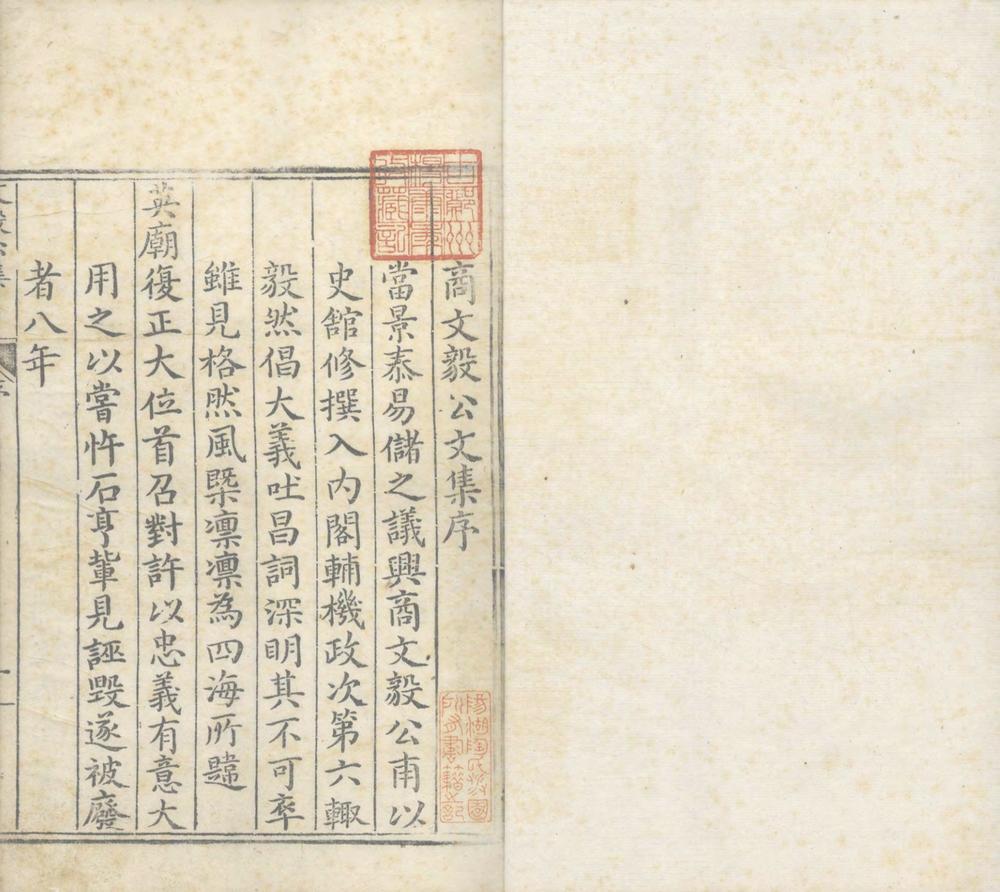 商文毅公文集序
當景泰易儲之議興商文毅公甫以
史館修撰入內閣輔機政次第六輙
毅然倡大義吐昌詞深明其不可卒
雖見格然風槩凛凛為四海所韙
英廟復正大位首召對許以忠義有意大
用之以嘗忤石亨軰見誣毀遂被廢
者八年
陽湖陶氏涉園
所有書籍之記